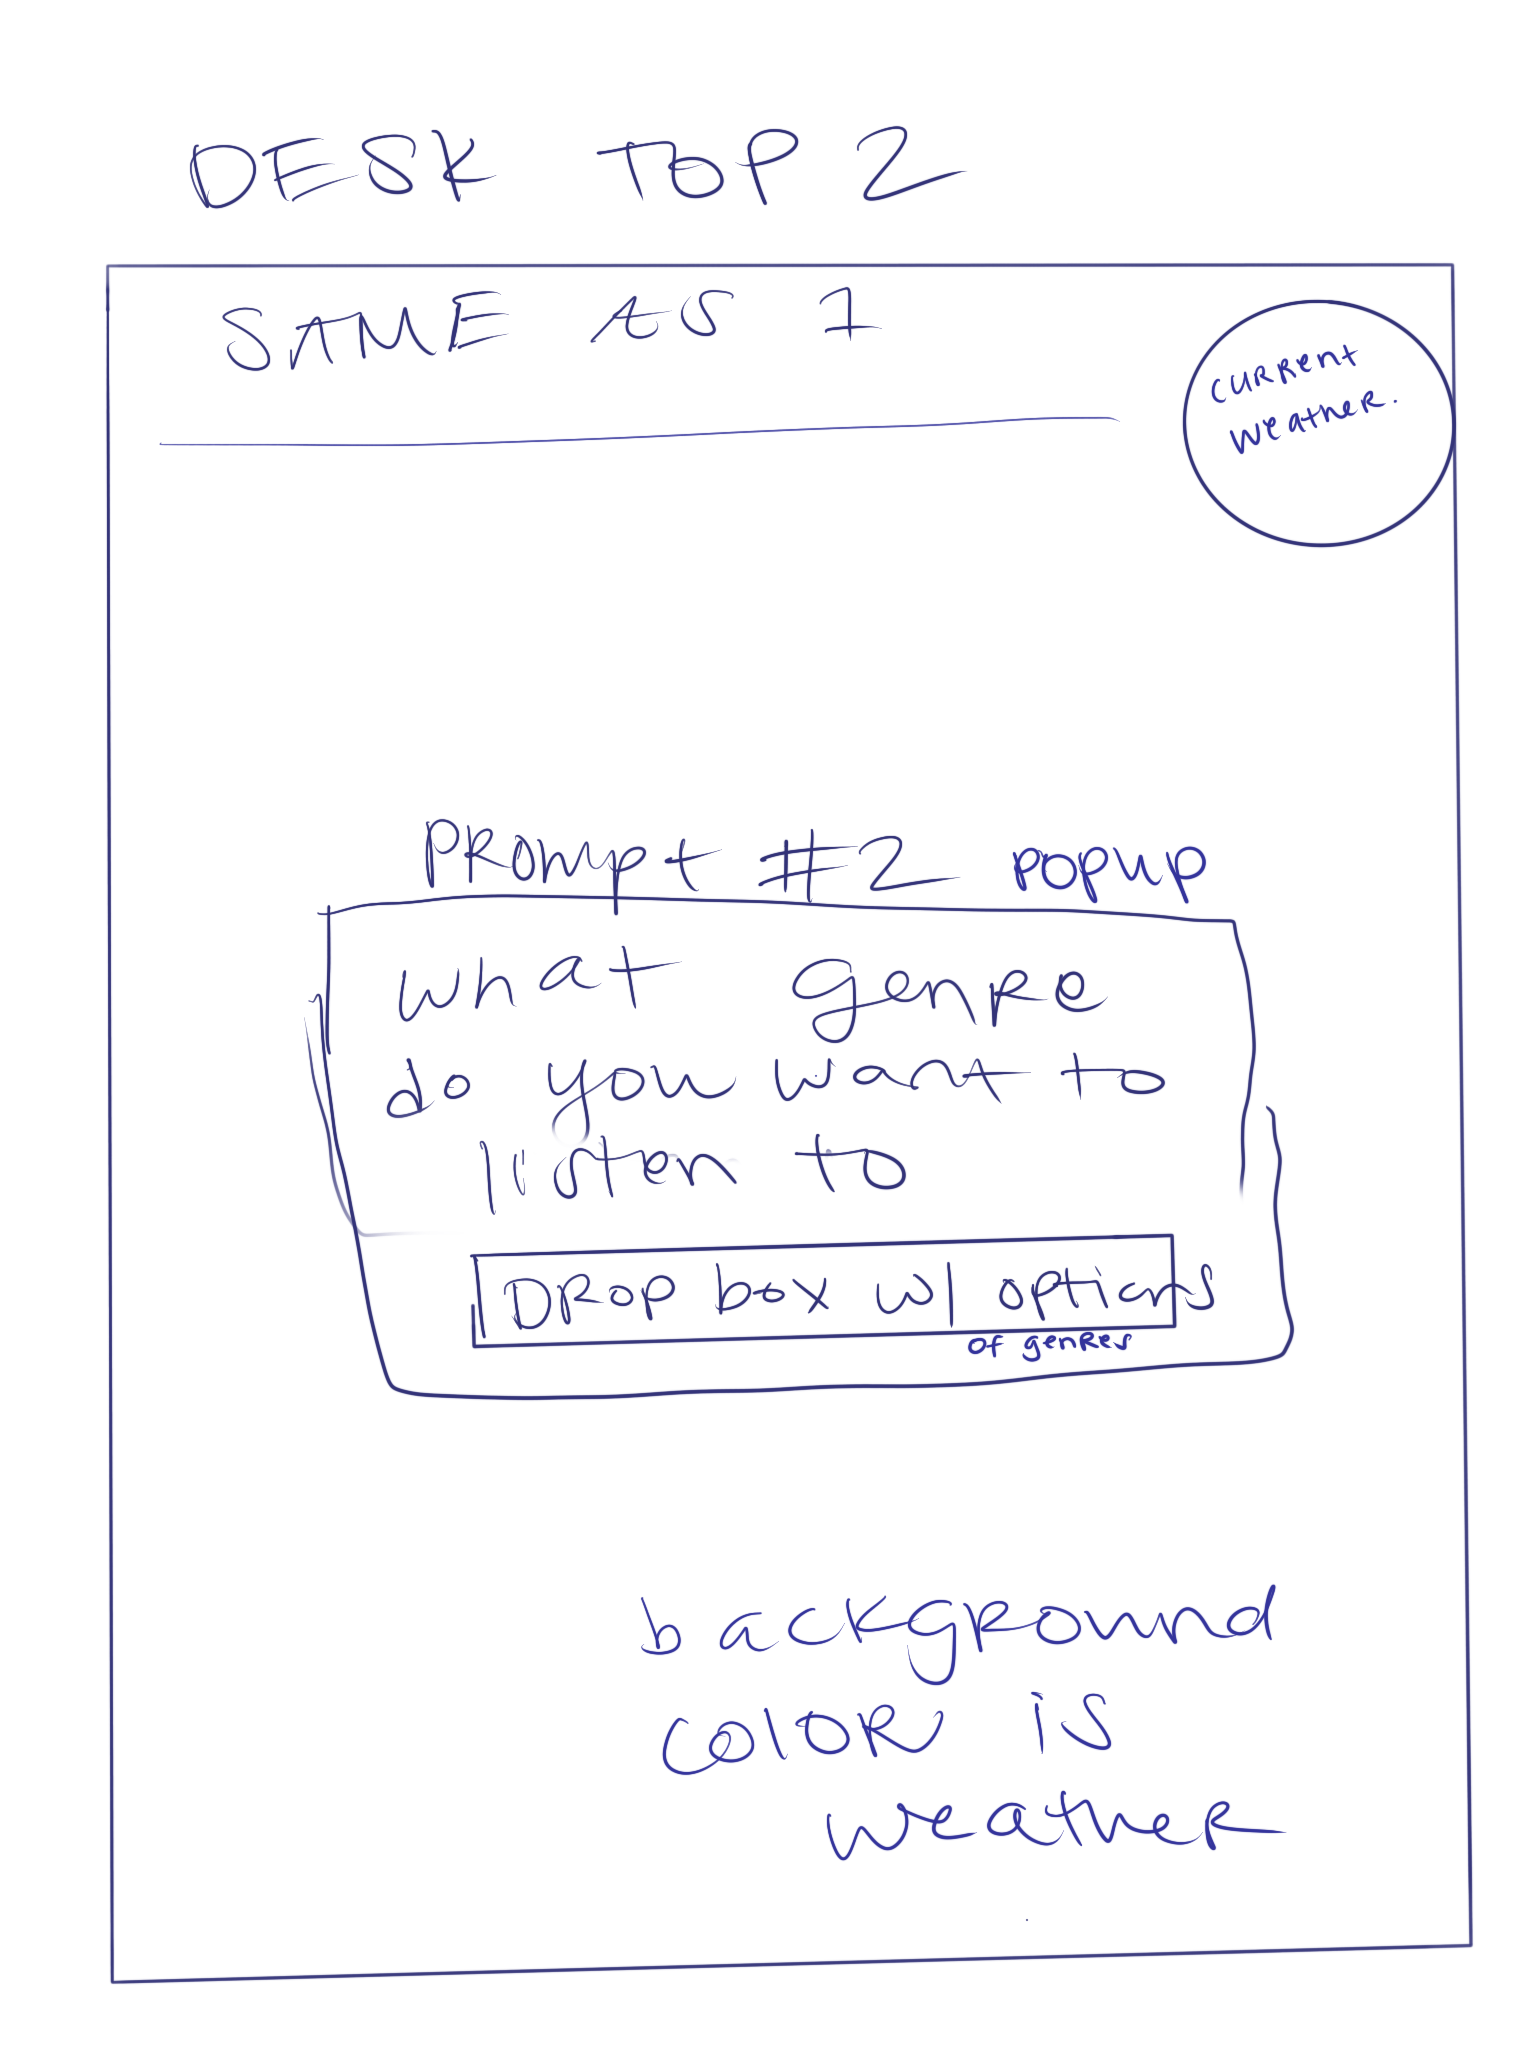 DESK TOP 2
SAME AS 1
CURRent
weatheR.
PROmpt #2 popup
what genRe
do you want to
listen to
DROP box w/ options
of genRes
backgRound
coloR is
weatheR